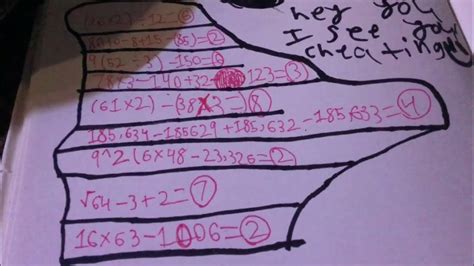 hey you
I see you
cheating
(6×2)-12=6
80+10-8+15-(85)=2
9(52÷3)-150=6
78×3-140+32-123=3
(61×2)-(38×3=)8
185,634-185629+185,632-185,633=4
9^2(6×48-23,326=2
√64-3+2=7
16×63-1006=2